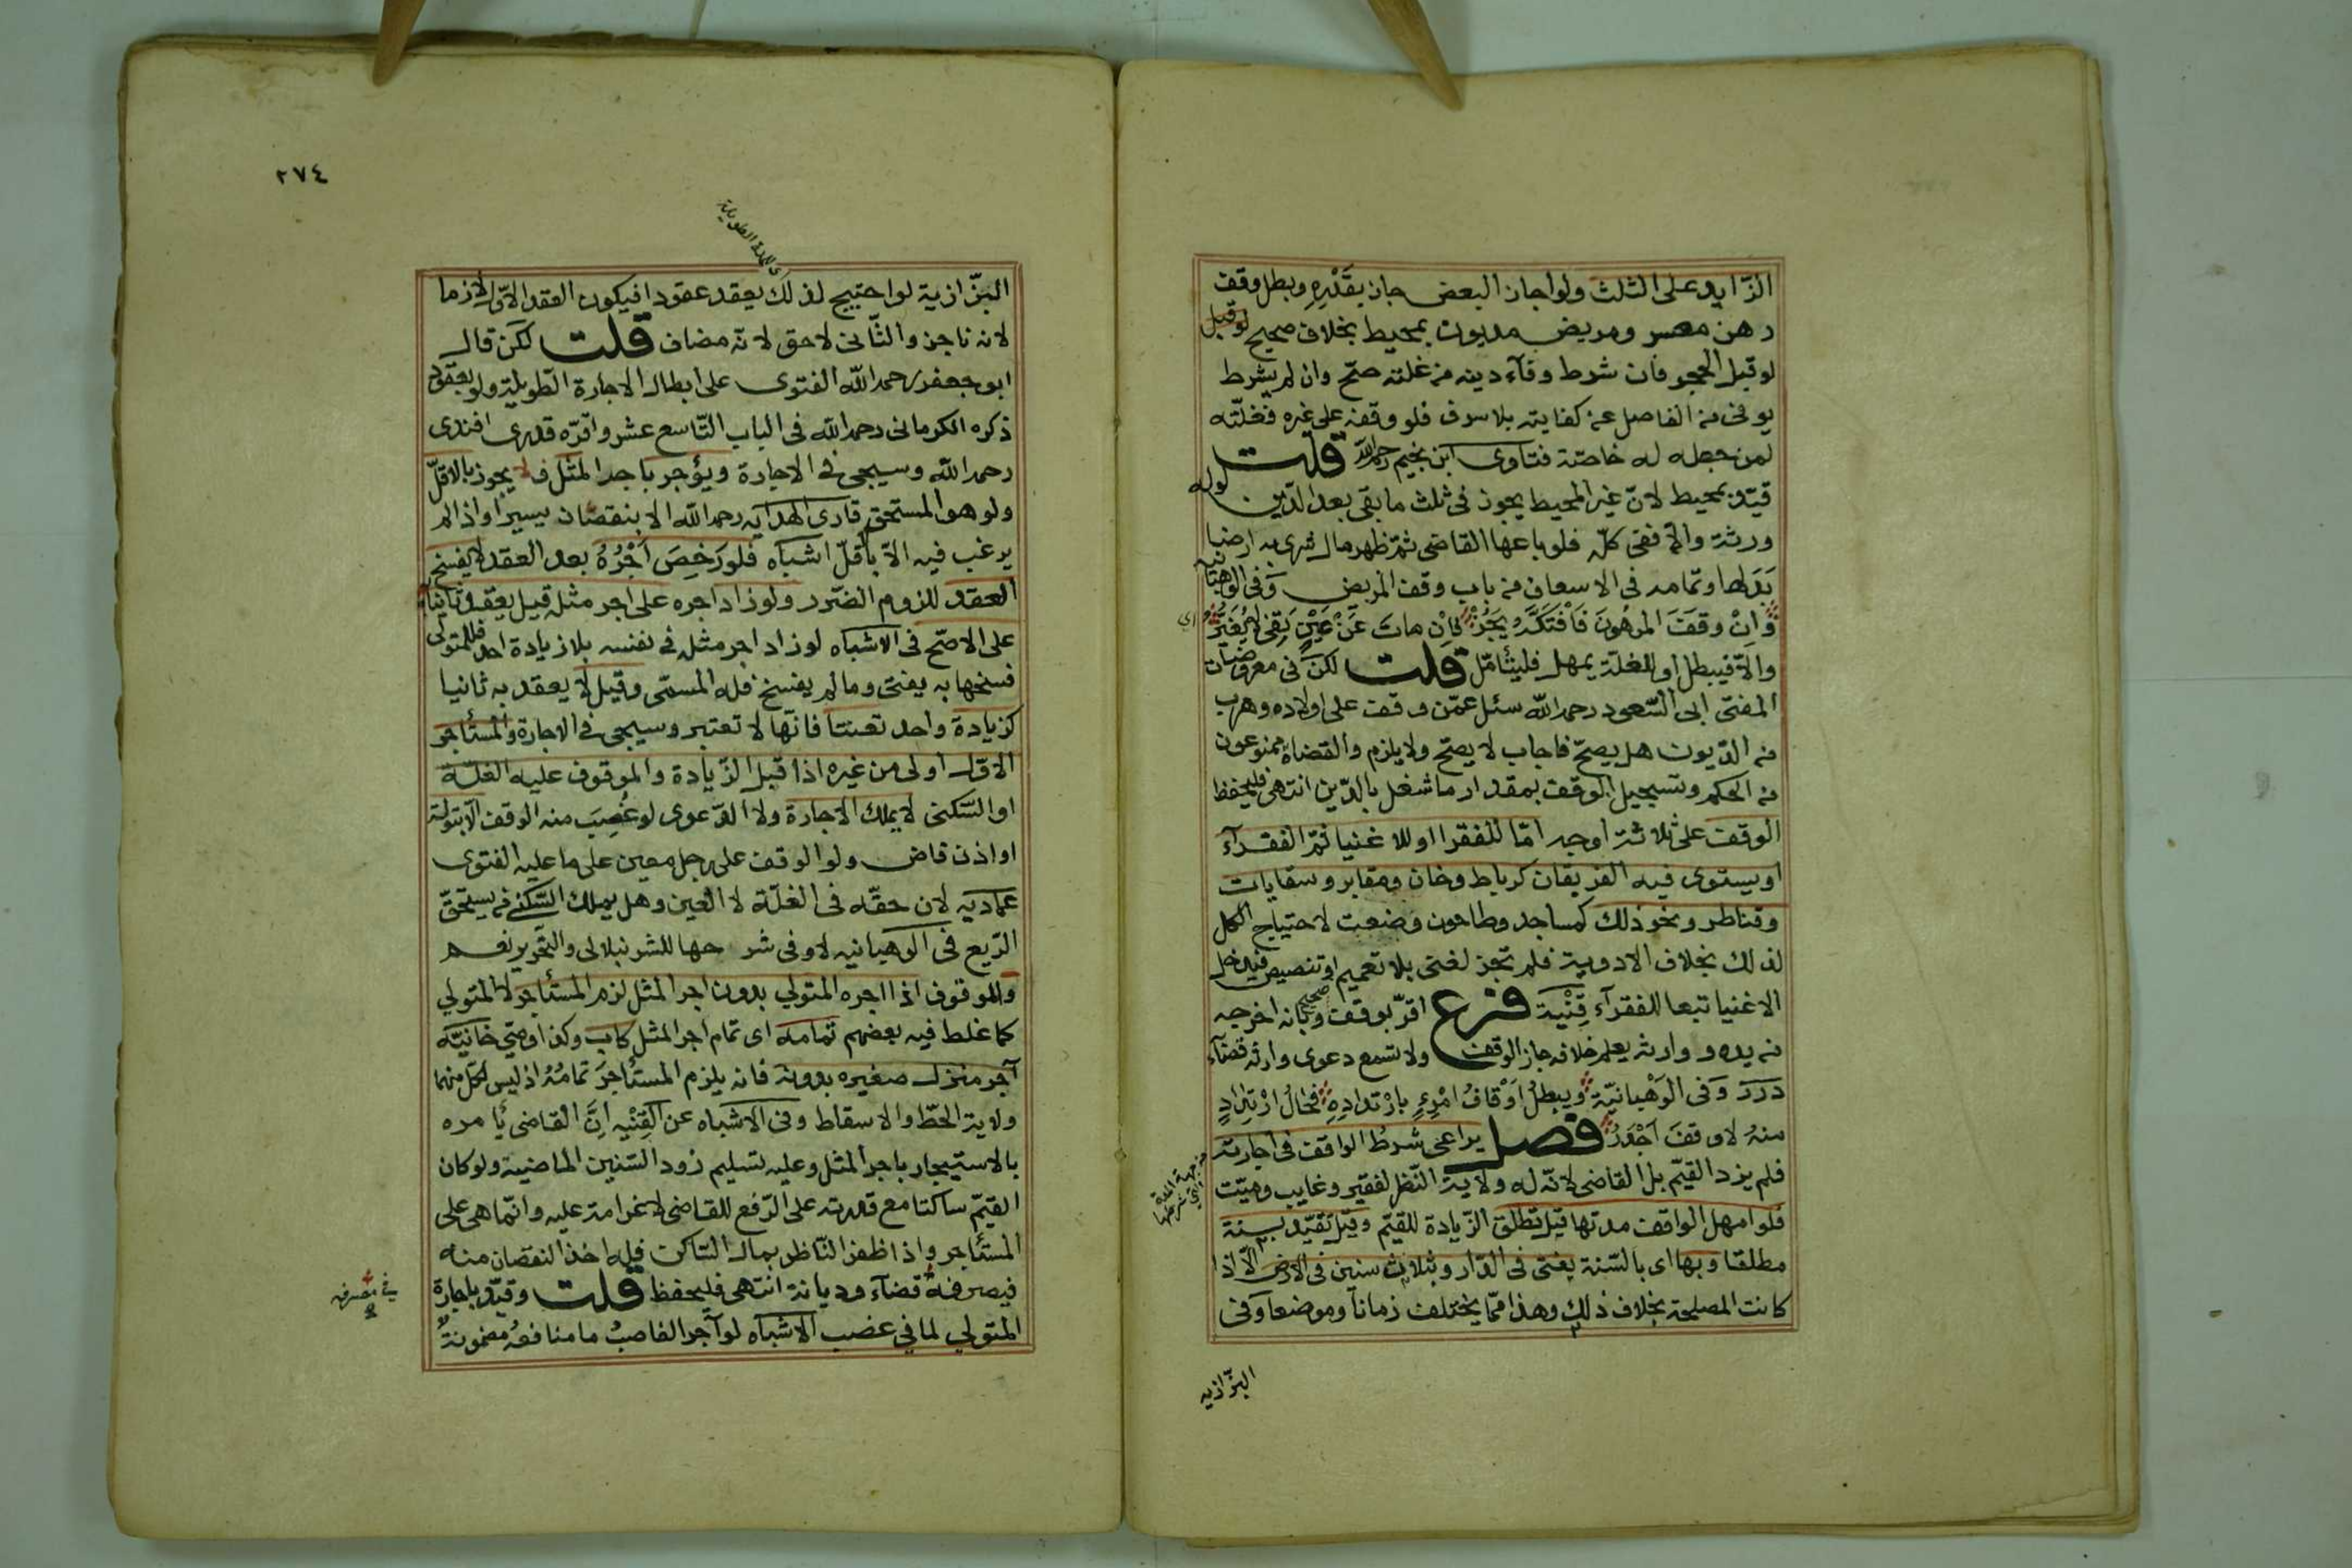 الزّايد على الثلث ولو اجاز البعض جاز بقَدْرِهِ وبطل وقف
رهن معسر ومريض مديون بمحيط بخلاف صحيح لو قبل
لو قبل الحجر فان شرط وفآء دينه من غلته صحّ وان لم يشرط
يوفى من الفاضل عن كفايته بلا سرف فلو وقفه على غيره فغلّته
لمن جعله له خاصّة فتاوى ابن نجيم رحمه الله قلت
قيّد بمحيط لانّ غير المحيط يجوز فى ثلث ما بقى بعد الدّين لو له
ورثة والّا ففى كلّه فلو باعها القاضى ثمّ ظهر مال شرى به ارضا
بَدَلها وتمامه فى الاسعاف من باب وقف المريض وَفى الوهبانية
وَإنْ وقفَ المرهُونَ فَافْتَكَّهُ يَجُزْ فَإن ماتَ عَنْ عَيْنٍ تَفِى لا يُغَيَّرُ اى
والّا فيبطل او للغلّة يمهل فليتأمّل قلت لكن فى معروضات
المفتى ابى السّعود رحمه الله سئل عمّن وقف على اولاده وهرب
من الدّيون هل يصحّ فاجاب لا يصحّ ولا يلزم والقضاة ممنوعون
من الحكم وتسجيل الوقف بمقدار ما شغل بالدّين انتهى فليحفظ
الوقف على ثلاثة اوجه امّا للفقرا او للاغنيا ثمّ الفقرآء
او يستوى فيه الفريقان كرباط وخان ومقابر وسقايات
وقناطر ونحو ذلك كمساجد وطاحون وضعت لاحتياج الكل
لذلك بخلاف الادوية فلم تجز لغنى بلا تعميم او تنصيص فيدخل
الاغنيا تبعا للفقرآء قِنْيَة فرع اقرّ بوقف صحيح وبانه اخرجه
من يده ووارثه يعلم خلافه جاز الوقف ولا تسمع دعوى وارثه قضآء
دررَ وَفى الوَهْبانيّة ويبطلُ اَوْقافُ امْرِءٍ بارْتدادِهِ فحَالُ ارْتدادٍ
منهُ لا وقفَ اَجْدَرُ فصل يراعى شرطُ الواقف فى اجارته
فلم يزد القيّم بل القاضى لانّه له ولاية النّظر لفقير وغايب وميّت
فلو امهل الواقف مدتها قيل تطلق الزّيادة للقيّم وقيل تقيّد بسنة
مطلقا وبها اى بالسّنة يفتى فى الدّار وبثلاث سنين فى الارض الّا اذا
كانت المصلحة بخلاف ذلك وهذا ممّا يختلف زماناً وموضعاً وَفى
البزّازيه
٢٧٤
اى المدة الطويلة
البزّازية لو احتيج لذلك يعقد عقودا فيكون العقد الاوّل لازما
لانه ناجز والثّانى لاحق لانّه مضاف قلت لكن قال
ابو جعفر رحمه الله الفتوى على ابطال الاجارة الطّويلة ولو بعقود
ذكره الكرمانى رحمه الله فى الباب التّاسع عشر واقرّه قدرى افندى
رحمه الله وسيجى فى الاجارة ويؤجر باجر المثل فلا يجوز بالاقلّ
ولو هو المستحق قارى الهدايه رحمه الله الا بنقصان يسير او اذا لم
يرغب فيه الاّ باقلّ اشباه فلو رَخِصَ اَجْرُهُ بعد العقد لا يفسخ
العقد للزوم الضّرر ولو زاد اجره على اجر مثله قيل يعقد ثانيا به
على الاصّح فى الاشباه لو زاد اجر مثله فى نفسه بلا زيادة احد فللمتولى
فسخها به يفتى وما لم يفسخ فله المسمّى وقيل لا يعقد به ثانيا
كزيادة واحد تعنتا فانّها لا تعتبر وسيجى فى الاجارة والمستأجر
الاوّل اولى من غيره اذا قبل الزّيادة والموقوف عليه الغلّة
او السّكنى لا يملك الاجارة ولا الدّعوى لو غُصِبَ منه الوقف الّا بتولية
او اذن قاض ولو الوقف على رجل معين على ما عليه الفتوى
عماديه لان حقّه فى الغلّة لا العين وهل يملك السّكنى من يستحقّ
الرّيع فى الوهبانيه لا وفى شرحها للشرنبلالى والتحرير نعم
والموقوف اذا اجره المتولي بدون اجر المثل لزم المستأجر لا المتولي
كما غلط فيه بعضهم تمامه اى تمام اجر المثل كاب وكذا وصيّ خانيّه
آجر منزل صغيره بدونه فانه يلزم المستأجرَ تمامُهُ اذ ليس لكلّ منهما
ولاية الحطّ والاسقاط وفى الاشباه عن القِنْيه اِنَّ القاضى يأمره
بالاستيجار باجر المثل وعليه تسليم زود السّنين الماضية ولو كان
القيّم ساكتا مع قدرته على الرّفع للقاضى لا غرامة عليه وانّما هى على
المستأجر واذا ظفر النّاظر بمال السّاكن فله اخذ النقصان منه
فيصرفهُ قضآء وديانة انتهى فليحفظ قلت وقيّد باجارة
المتولي لما في غصب الاشباه لو آجر الغاصبُ ما منافعُه مضمونةٌ
في مصرفه